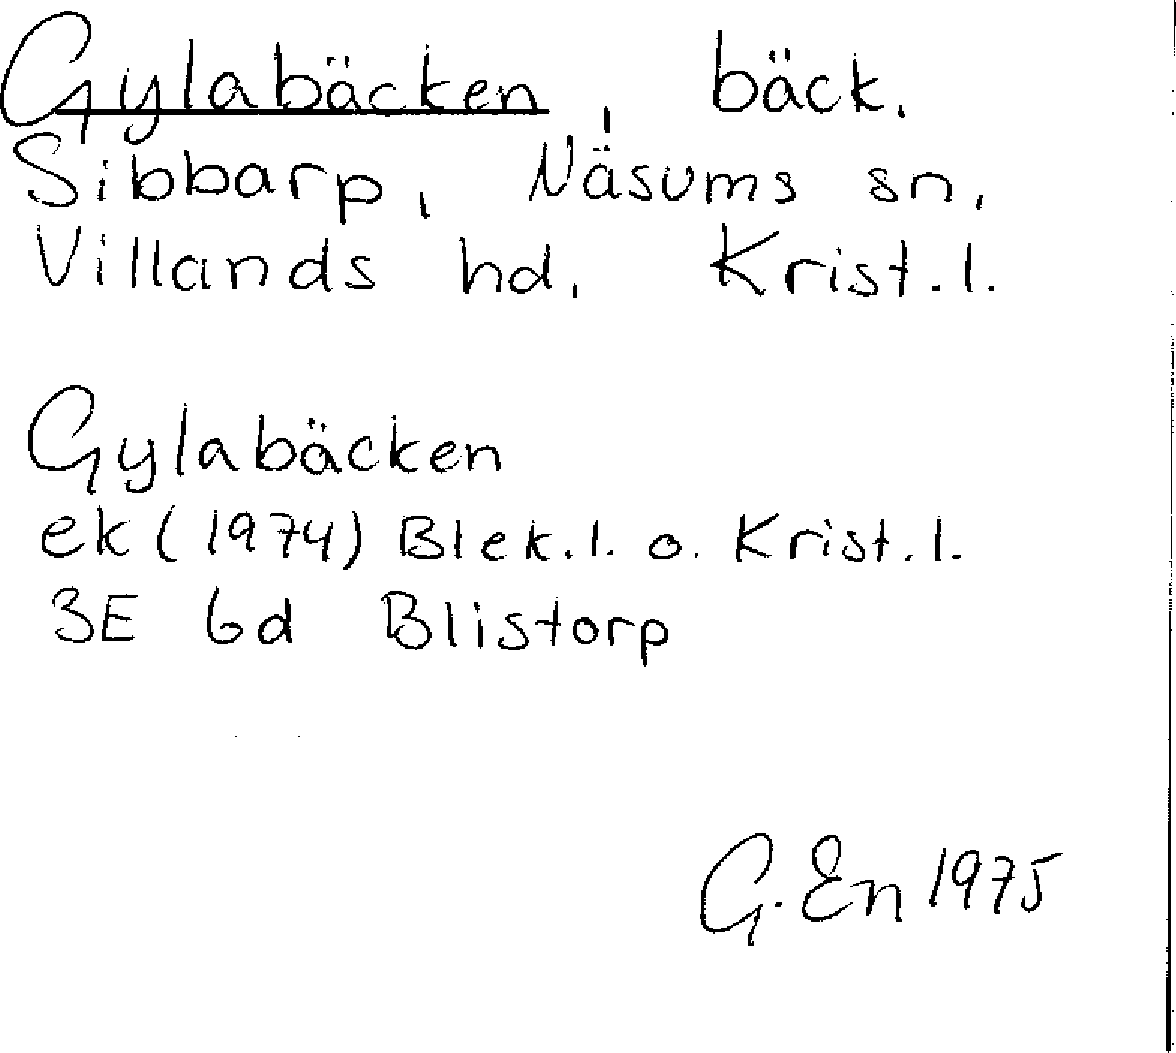 Gylabäcken, bäck.
Sibbarp, Näsums sn,
Villands hd, Krist.l.
Gylabäcken
ek (1974) Blek.l. o. Krist.l.
3E 6d Blistorp
G. En 1975